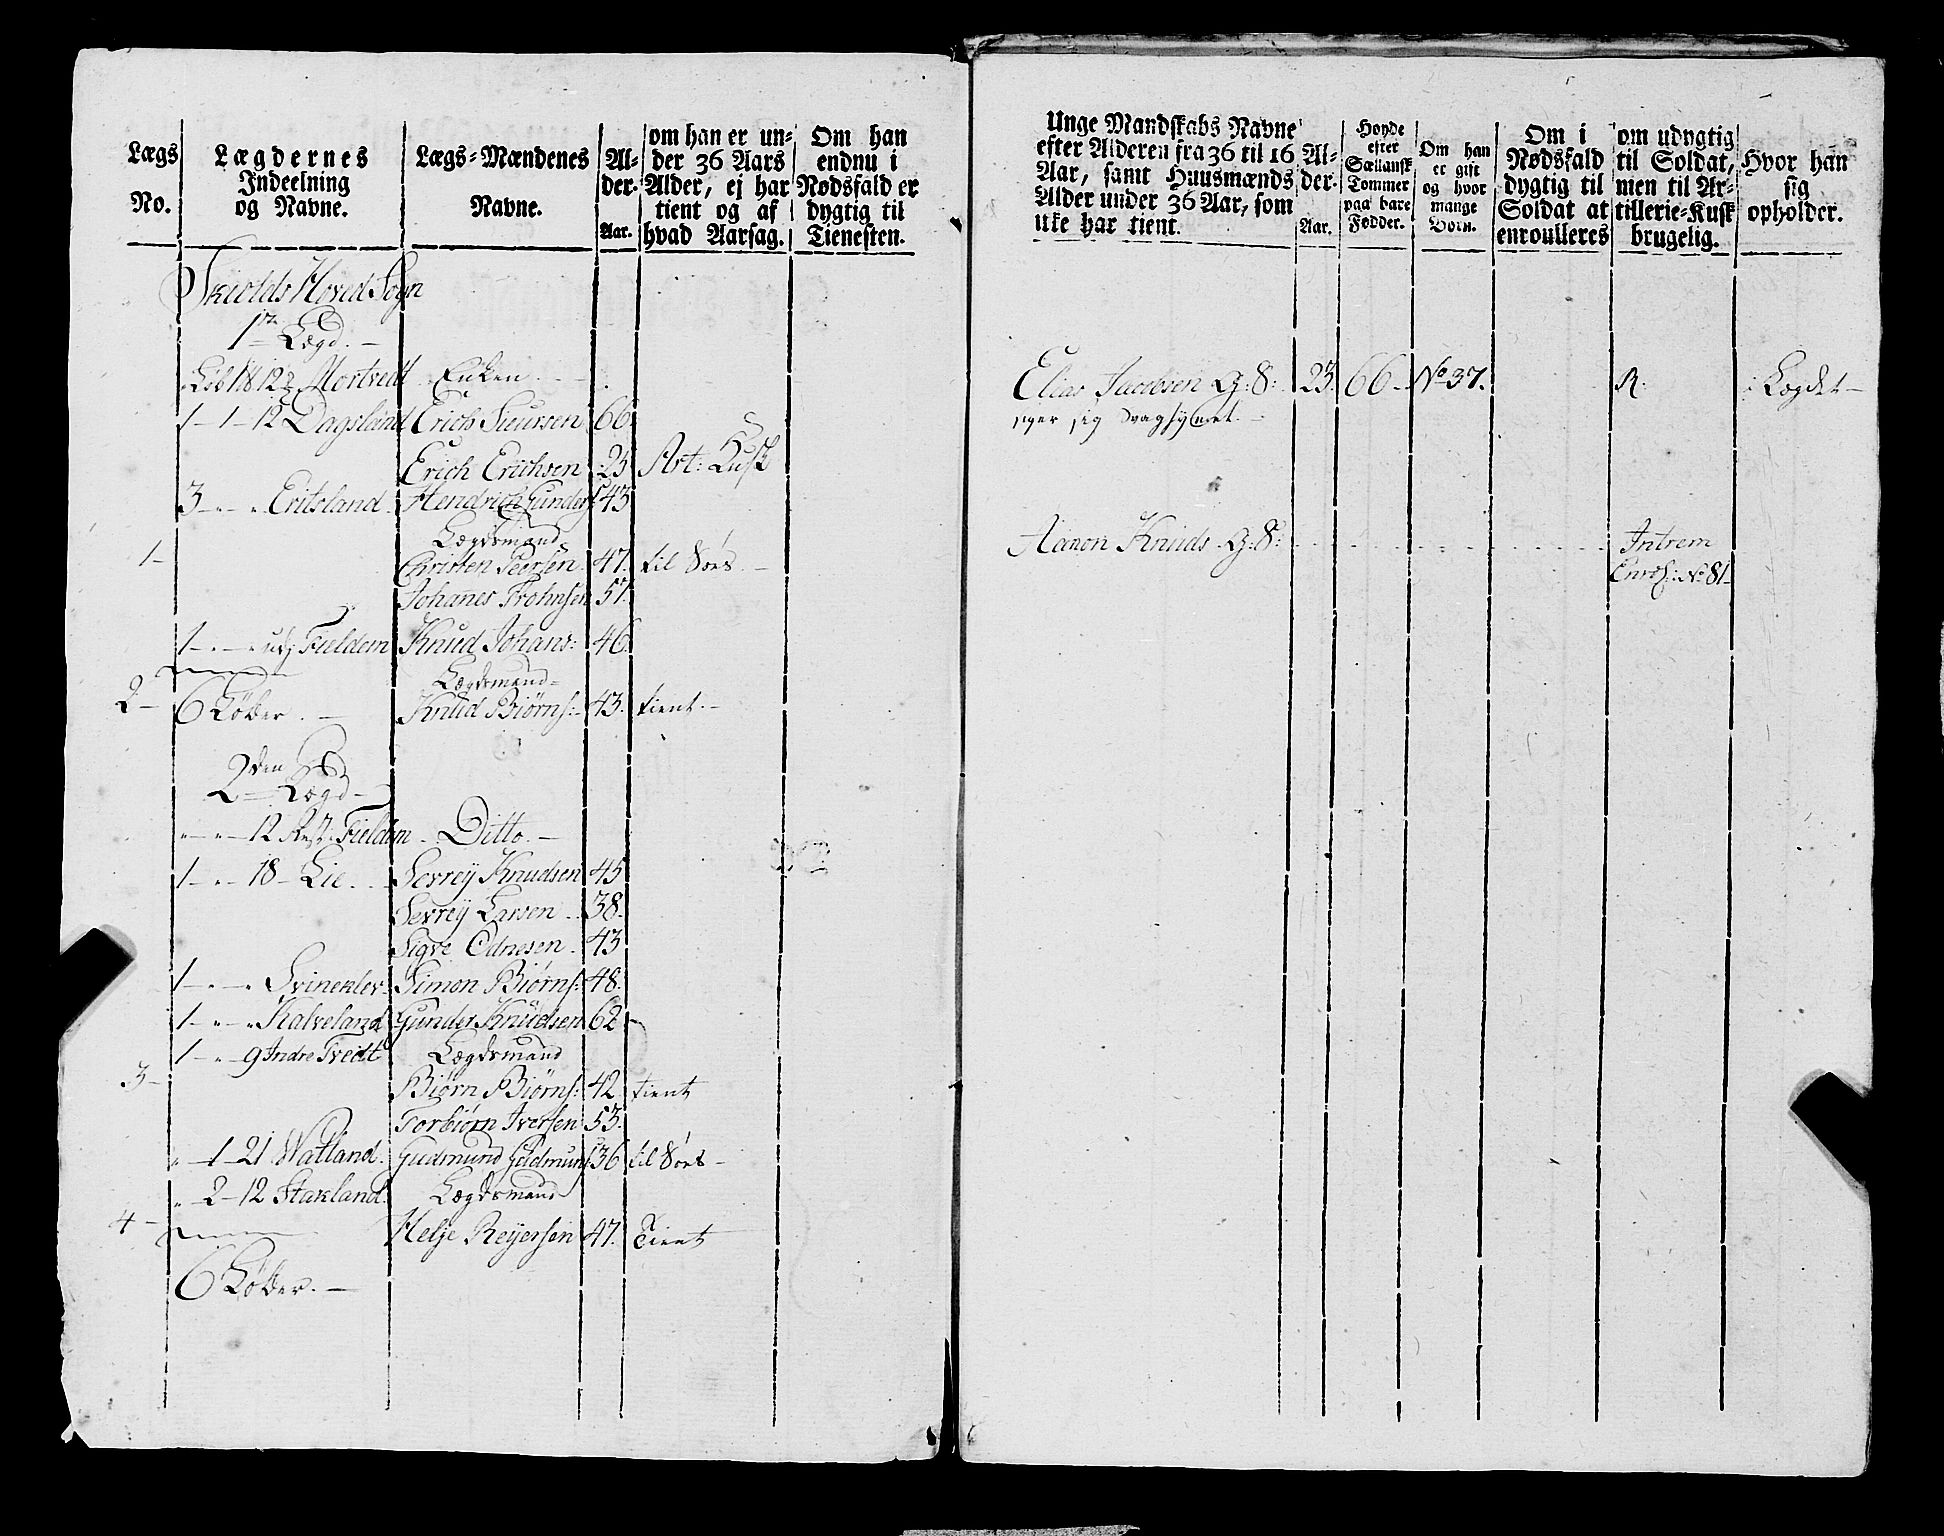 Lægs No.
Lægdernes Indeelning og Navne.
Lægs-Mændenes Navne.
Alder. Aar.
om han er under 36 Aars Alder, ej har tient og af hvad Aarsag.
Om han endnu i Nødsfald er dygtig til Tienesten.
Skiolds Hoved Sogn
1te Lægd. —
Løb 18 12 Mortvedt Enken
1 – 1 – 12 Dagsland Erich Siursen 66
Erich Erichsen 25 Art: Kusk
3 Eritsland Hendrich Gunders 43
Lægdsmand
1 – Christen Peersen 47. til Søes. —
Johanes Trohnsen 57.
1 – " – " udj Fieldem Knud Johans: 46
Lægdsmand
2 – 6 Løber. — Knud Biørns: 43. tient. —
2den Lægd —
" – " – 12 Rest: Fieldem Ditto. —
1 – " – 18 – Lie Sevrey Knudsen 45
Sevrey Larsen 38.
Sigve Odnesen 43
1 – " – " Svinenlev Simon Biørns: 48.
1 – " – " Kalveland Gunder Knudsen 62
1 – " – 9 Indre Tvedt Lægdsmand
3 – Biørn Biørns: 42 tient
Torbiørn Iversen 53.
" – 1 – 21 Watland. Gudmund Gudmunds 36 til Søes –
" 2 – 12 Stakland. Lægdsmand
4 – Helje Reyersen 47. Tient
6 Løber. —
Unge Mandskabs Navne efter Alderen fra 36 til 16 Aar, samt Huusmænds Alder under 36 Aar, som ikke har tient.
Alder. Aar.
Høyde efter Sællansk Tommer paa bare Fødder.
Om han er gift og hvor mange Børn.
Om i Nødsfald dygtig til Soldat at enroulleres
om udygtig til Soldat, men til Artillerie-Kusk brugelig.
Hvor han sig opholder.
Elias Jacobsen G: S: 23. 66 No 37. R: Lægdet —
siger sig svagsynet. —
Aanon Knuds G: S: Intrem
Enrol: No 81